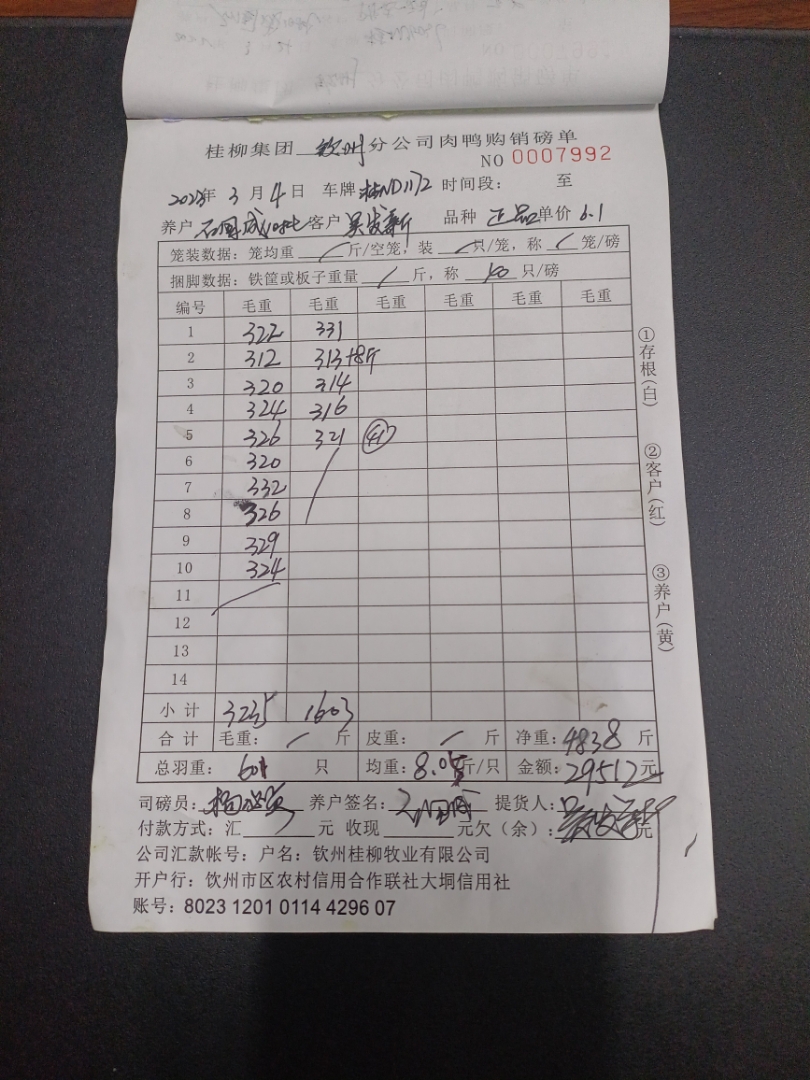 桂柳集团 钦州 分公司肉鸭购销磅单
NO 0007992
2023年 3 月 4 日 车牌 桂ND1172 时间段： 至
养户 客户 品种 正品 单价 6.1
笼装数据：笼均重 / 斤/空笼，装 / 只/笼，称 / 笼/磅
捆脚数据：铁筐或板子重量 / 斤，称 40 只/磅
编号 毛重 毛重 毛重 毛重 毛重 毛重
1 322 331
2 312 313+8斤
3 320 314
4 324 316
5 326 321 41
6 320
7 332
8 326
9 329
10 324
11
12
13
14
小计 3235 1603
合计 毛重： / 斤 皮重： / 斤 净重：4838 斤
总羽重： 601 只 均重：8.05斤/只 金额：29512元
司磅员： 养户签名： 提货人：
付款方式：汇 元 收现 元欠（余）： 元
公司汇款帐号：户名：钦州桂柳牧业有限公司
开户行：钦州市区农村信用合作联社大垌信用社
账号：8023 1201 0114 4296 07
①存根（白）
②客户（红）
③养户（黄）